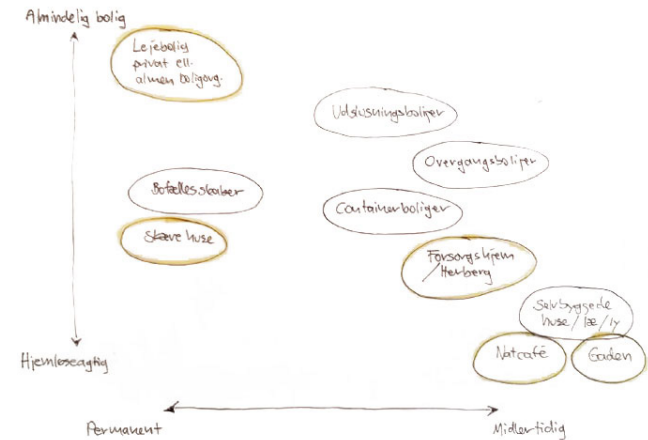 Almindelig bolig
Lejebolig
privat ell.
almen boligorg.
Udslusningsboliger
Overgangsboliger
Bofællesskaber
Containerboliger
Skæve huse
Forsorgshjem
/Herberg
Selvbyggede
huse/læ/ly
Natcafé
Gaden
Hjemløseagtig
Permanent
Midlertidig